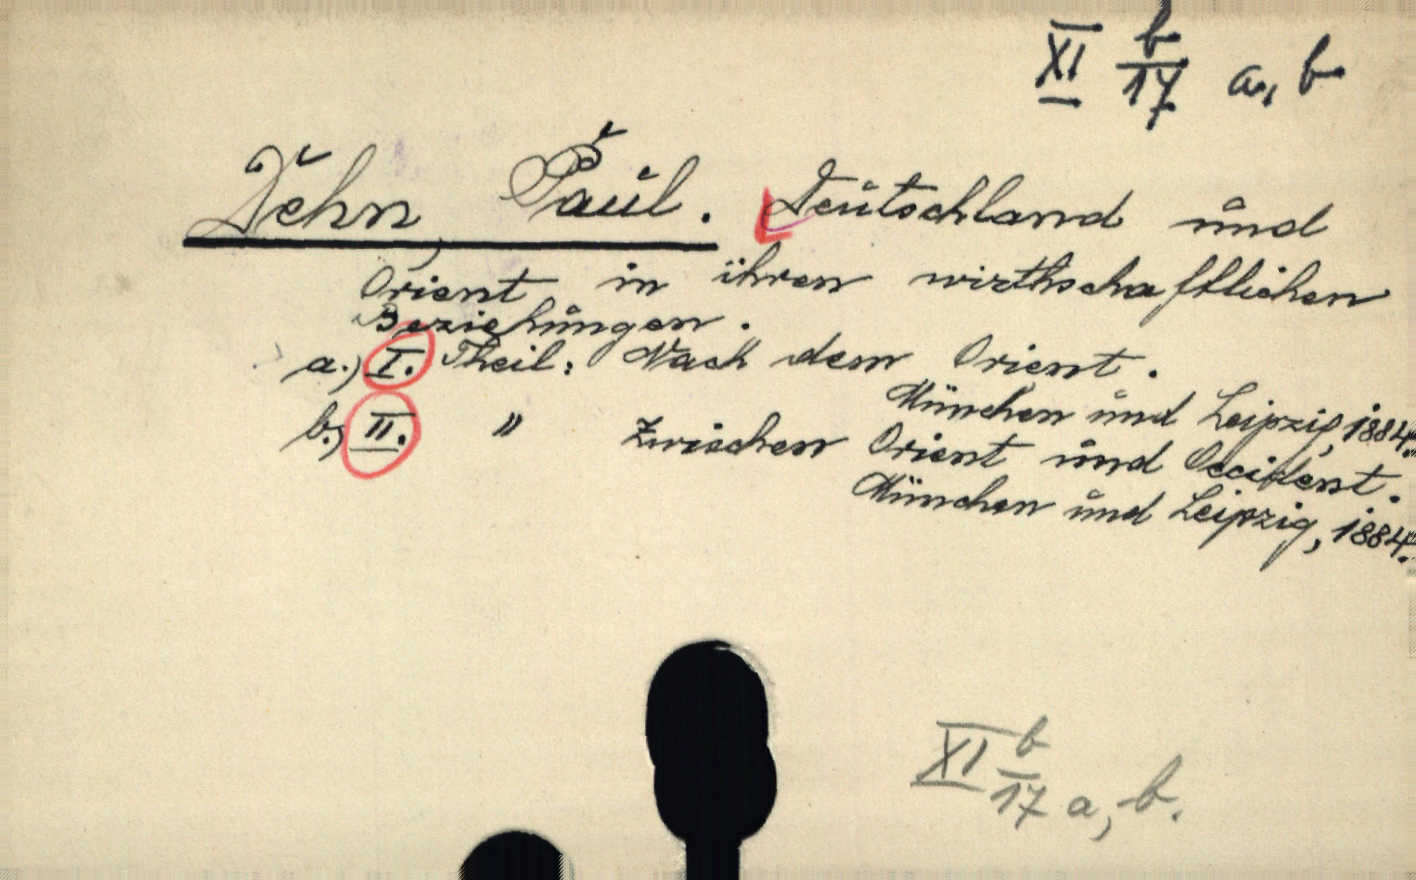 XI b/17 a, b
Dehn, Paul. Deutschland und
Orient in ihren wirthschaftlichen
Beziehungen.
a.) I. Theil: Nach dem Orient.
München und Leipzig, 1884.
b.) II. " Zwischen Orient und Occident.
München und Leipzig, 1884.
XI b/17 a, b.